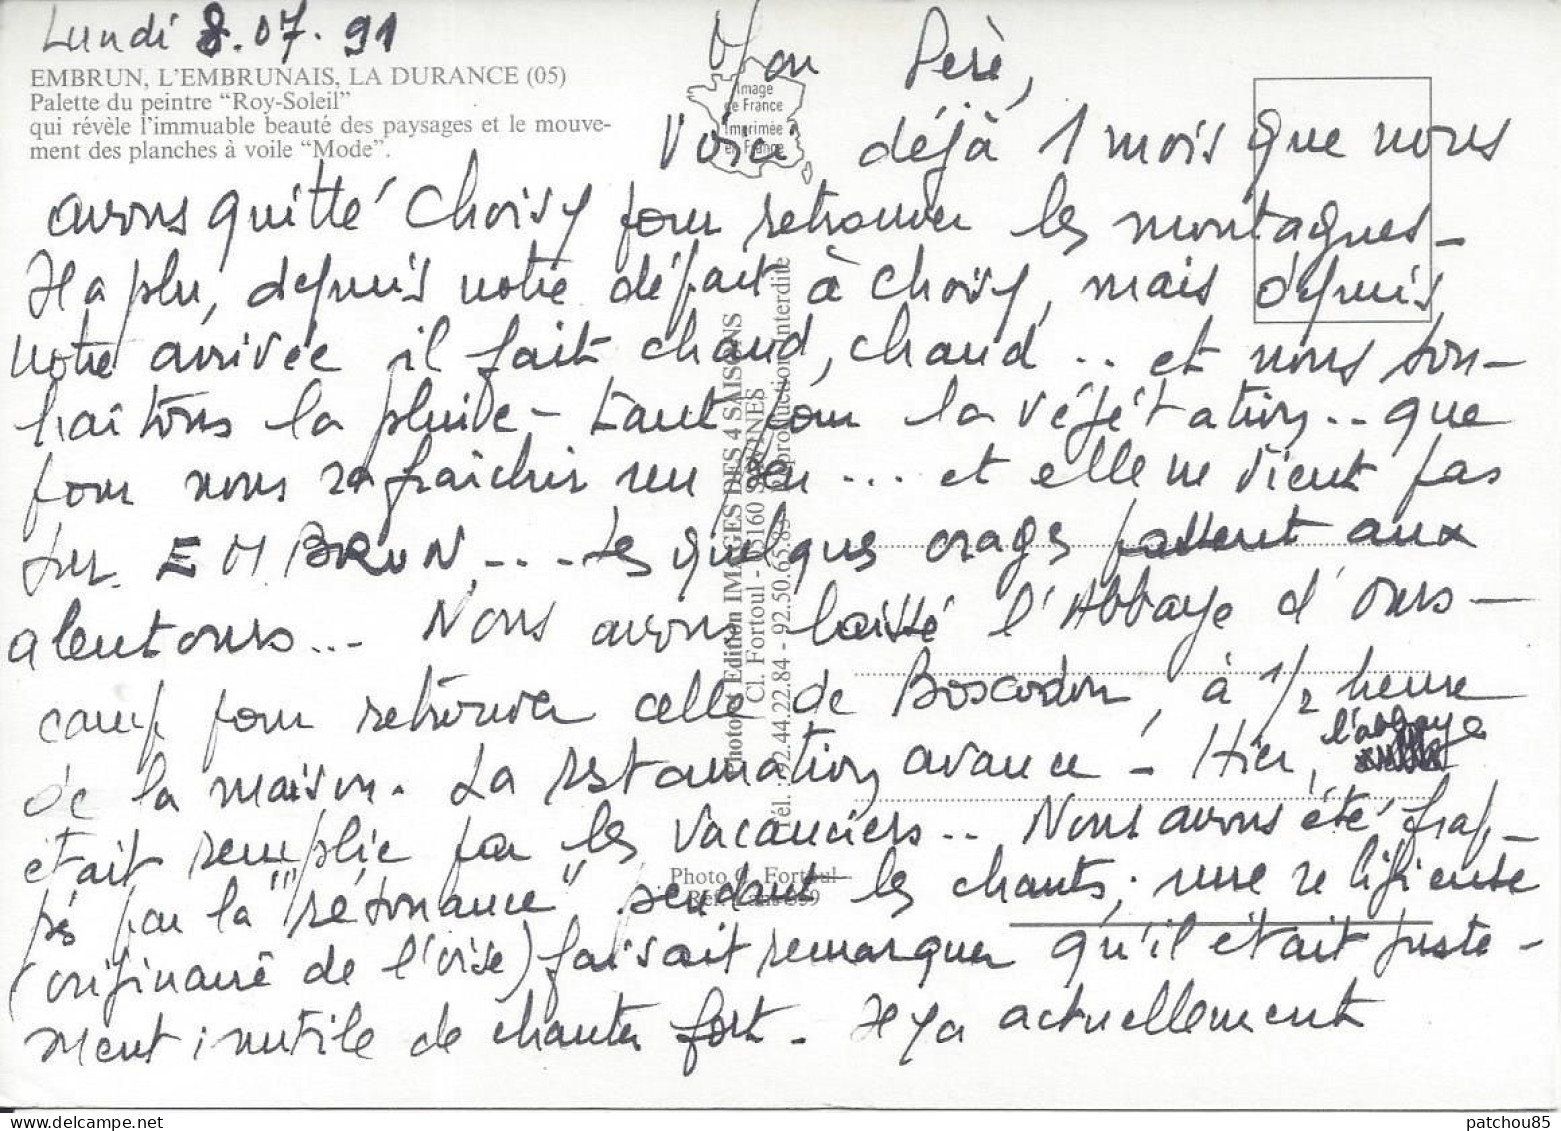 Lundi 8.07.91
EMBRUN, L'EMBRUNAIS, LA DURANCE (05)
Palette du peintre “Roy-Soleil”
qui révèle l'immuable beauté des paysages et le mouve-
ment des planches à voile “Mode”.
Image
de France
Imprimée
en France
Mon Père,
Voici déjà 1 mois que nous
avons quitté Choisy pour retrouver les montagnes -
Il a plu, depuis notre départ à Choisy, mais depuis
notre arrivée il fait chaud, chaud .. et nous sou-
haitons la pluie - tant pour la végétation .. que
pour nous rafraîchir un peu ... et elle ne vient pas
sur EMBRUN ... - Les quelques orages passent aux
alentours ... Nous avons laissé l'Abbaye d'Ours-
camp pour retrouver celle de Boscodon, à 1/2 heure
de la maison. La restauration avance - Hier, l'abbaye
était remplie par les vacanciers .. Nous avons été frap-
pés par la "résonance" pendant les chants ; une religieuse
(originaire de l'oise) faisait remarquer qu'il était juste-
ment inutile de chanter fort. Il y a actuellement
Photos Edition IMAGES DES 4 SAISONS
Cl. Fortoul - 05160 SAVINES
Tél. : 92.44.22.84 - 92.50.65.85 - Reproduction interdite
Photo C. Fortoul
www.delcampe.net
patchou85